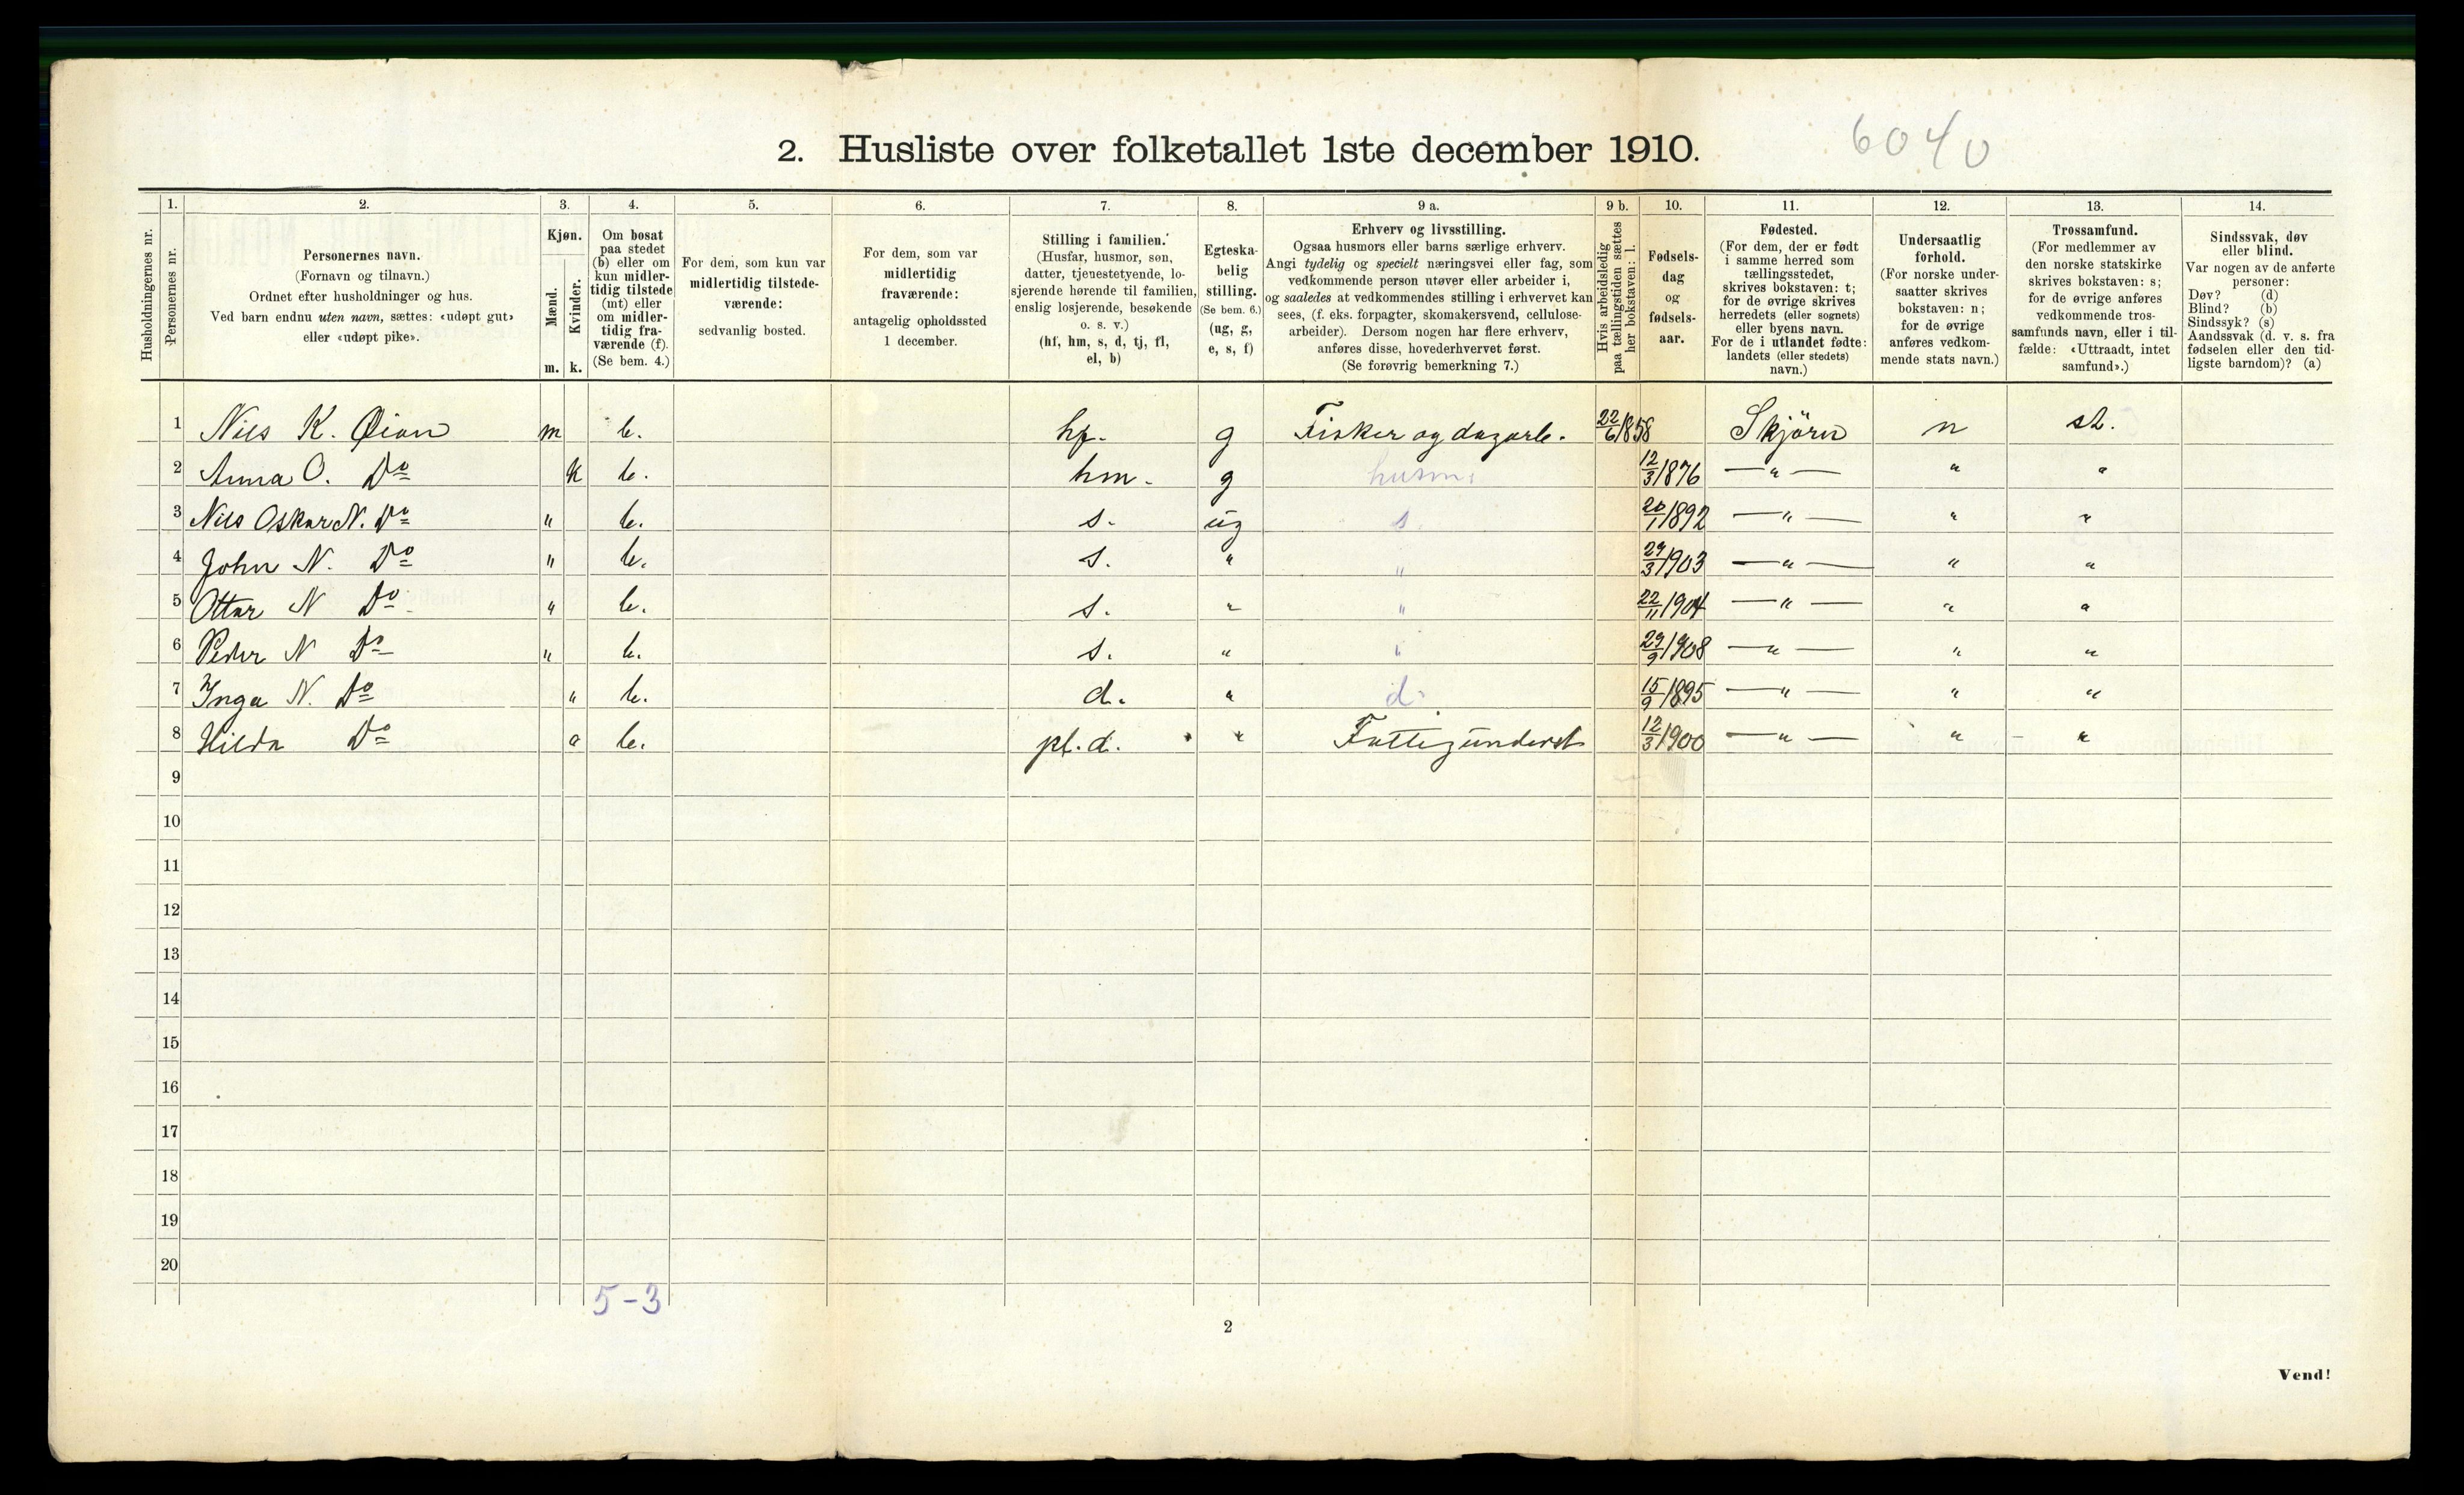 6040
2. Husliste over folketallet 1ste december 1910.
Husholdningernes nr.
1.
Personernes nr.
2.
Personernes navn.
(Fornavn og tilnavn.)
Ordnet efter husholdninger og hus.
Ved barn endnu uten navn, sættes: «udøpt gut»
eller «udøpt pike».
3.
Kjøn.
Mænd.
Kvinder.
m. k.
4.
Om bosat
paa stedet
(b) eller om
kun midler-
tidig tilstede
(mt) eller
om midler-
tidig fra-
værende (f).
(Se bem. 4.)
5.
For dem, som kun var
midlertidig tilstede-
værende:
sedvanlig bosted.
6.
For dem, som var
midlertidig
fraværende:
antagelig opholdssted
1 december.
7.
Stilling i familien.
(Husfar, husmor, søn,
datter, tjenestetyende, lo-
sjerende hørende til familien,
enslig losjerende, besøkende
o. s. v.)
(hf, hm, s, d, tj, fl,
el, b)
8.
Egteska-
belig
stilling.
(Se bem. 6.)
(ug, g,
e, s, f)
9 a.
Erhverv og livsstilling.
Ogsaa husmors eller barns særlige erhverv.
Angi tydelig og specielt næringsvei eller fag, som
vedkommende person utøver eller arbeider i,
og saaledes at vedkommendes stilling i erhvervet kan
sees, (f. eks. forpagter, skomakersvend, cellulose-
arbeider). Dersom nogen har flere erhverv,
anføres disse, hovederhvervet først.
(Se forøvrig bemerkning 7.)
9 b.
Hvis arbeidsledig
paa tællingstiden sættes
her bokstaven: l.
10.
Fødsels-
dag
og
fødsels-
aar.
11.
Fødested.
(For dem, der er født
i samme herred som
tællingsstedet,
skrives bokstaven: t;
for de øvrige skrives
herredets (eller sognets)
eller byens navn.
For de i utlandet fødte:
landets (eller stedets)
navn.)
12.
Undersaatlig
forhold.
(For norske under-
saatter skrives
bokstaven: n;
for de øvrige
anføres vedkom-
mende stats navn.)
13.
Trossamfund.
(For medlemmer av
den norske statskirke
skrives bokstaven: s;
for de øvrige anføres
vedkommende tros-
samfunds navn, eller i til-
fælde: «Uttraadt, intet
samfund».)
14.
Sindssvak, døv
eller blind.
Var nogen av de anførte
personer:
Døv? (d)
Blind? (b)
Sindssyk? (s)
Aandssvak (d. v. s. fra
fødselen eller den tid-
ligste barndom)? (a)
1 Nils K. Øian m b. hf. g Fisker og dagarb. 22/6 1858 Skjörn n st.
2 Anna O. Do k b. hm. g husm. 12/3 1876 — " — " "
3 Nils Oskar N. Do " b. s. ug s. 20/1 1892 — " — " "
4 John N. Do " b. s. " " 29/3 1903 — " — " "
5 Ottar N Do " b. s. " " 22/11 1904 — " — " "
6 Peder N Do " b. s. " " 29/9 1908 — " — " "
7 Inga N. Do " b. d. " d. 15/9 1895 — " — " "
8 Hilda Do " b. pl. d. " Fattigunderst 12/3 1900 — " — " "
9
10
11
12
13
14
15
16
17
18
19
20
5-3
2
Vend!